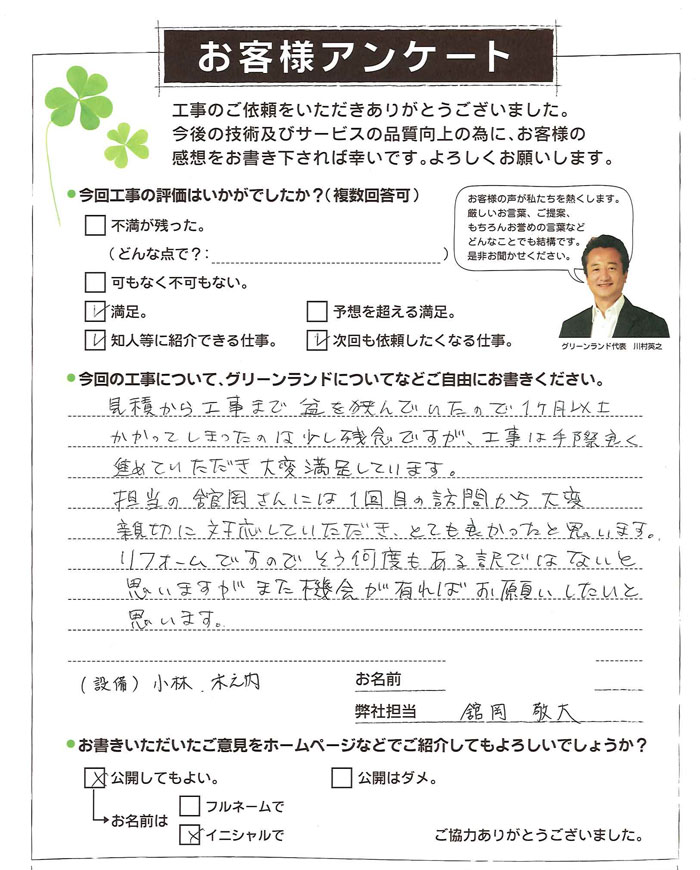 お客様アンケート
工事のご依頼をいただきありがとうございました。
今後の技術及びサービスの品質向上の為に、お客様の
感想をお書き下されば幸いです。よろしくお願いします。
●今回工事の評価はいかがでしたか？（複数回答可）
お客様の声が私たちを熱くします。
厳しいお言葉、ご提案、
もちろんお誉めの言葉など
どんなことでも結構です。
是非お聞かせください。
不満が残った。
（どんな点で？：　）
可もなく不可もない。
満足。
予想を超える満足。
知人等に紹介できる仕事。
次回も依頼したくなる仕事。
グリーンランド代表　川村英之
●今回の工事について、グリーンランドについてなどご自由にお書きください。
見積から工事まで盆を挟んでいたので1ヶ月以上
かかってしまったのは少し残念ですが、工事は手際良く
進めていただき大変満足しています。
担当の舘岡さんには1回目の訪問から大変
親切に対応していただき、とても良かったと思います。
リフォームですのでそう何度もある訳ではないと
思いますがまた機会が有ればお願いしたいと
思います。
（設備）小林．木之内
お名前
弊社担当　舘岡　敬大
●お書きいただいたご意見をホームページなどでご紹介してもよろしいでしょうか？
公開してもよい。
公開はダメ。
お名前は
フルネームで
イニシャルで
ご協力ありがとうございました。